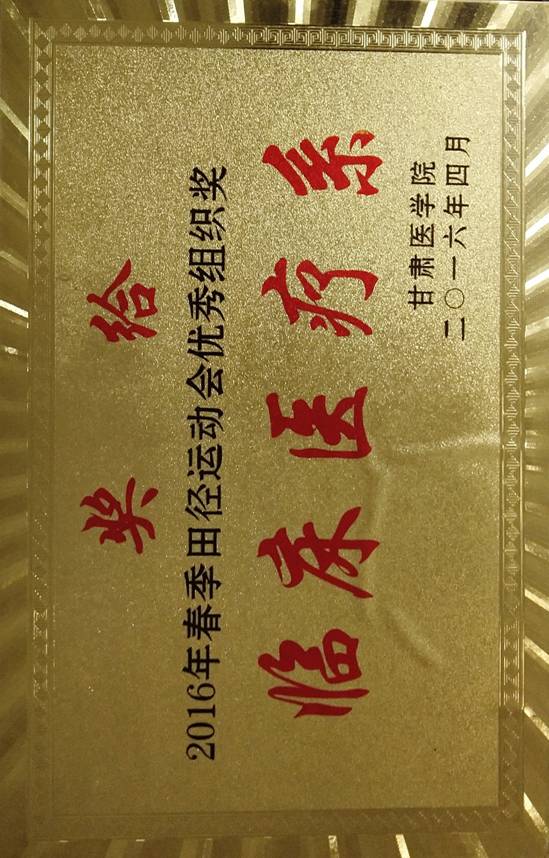 奖给
2016年春季田径运动会优秀组织奖
临床医疗系
甘肃医学院
二〇一六年四月